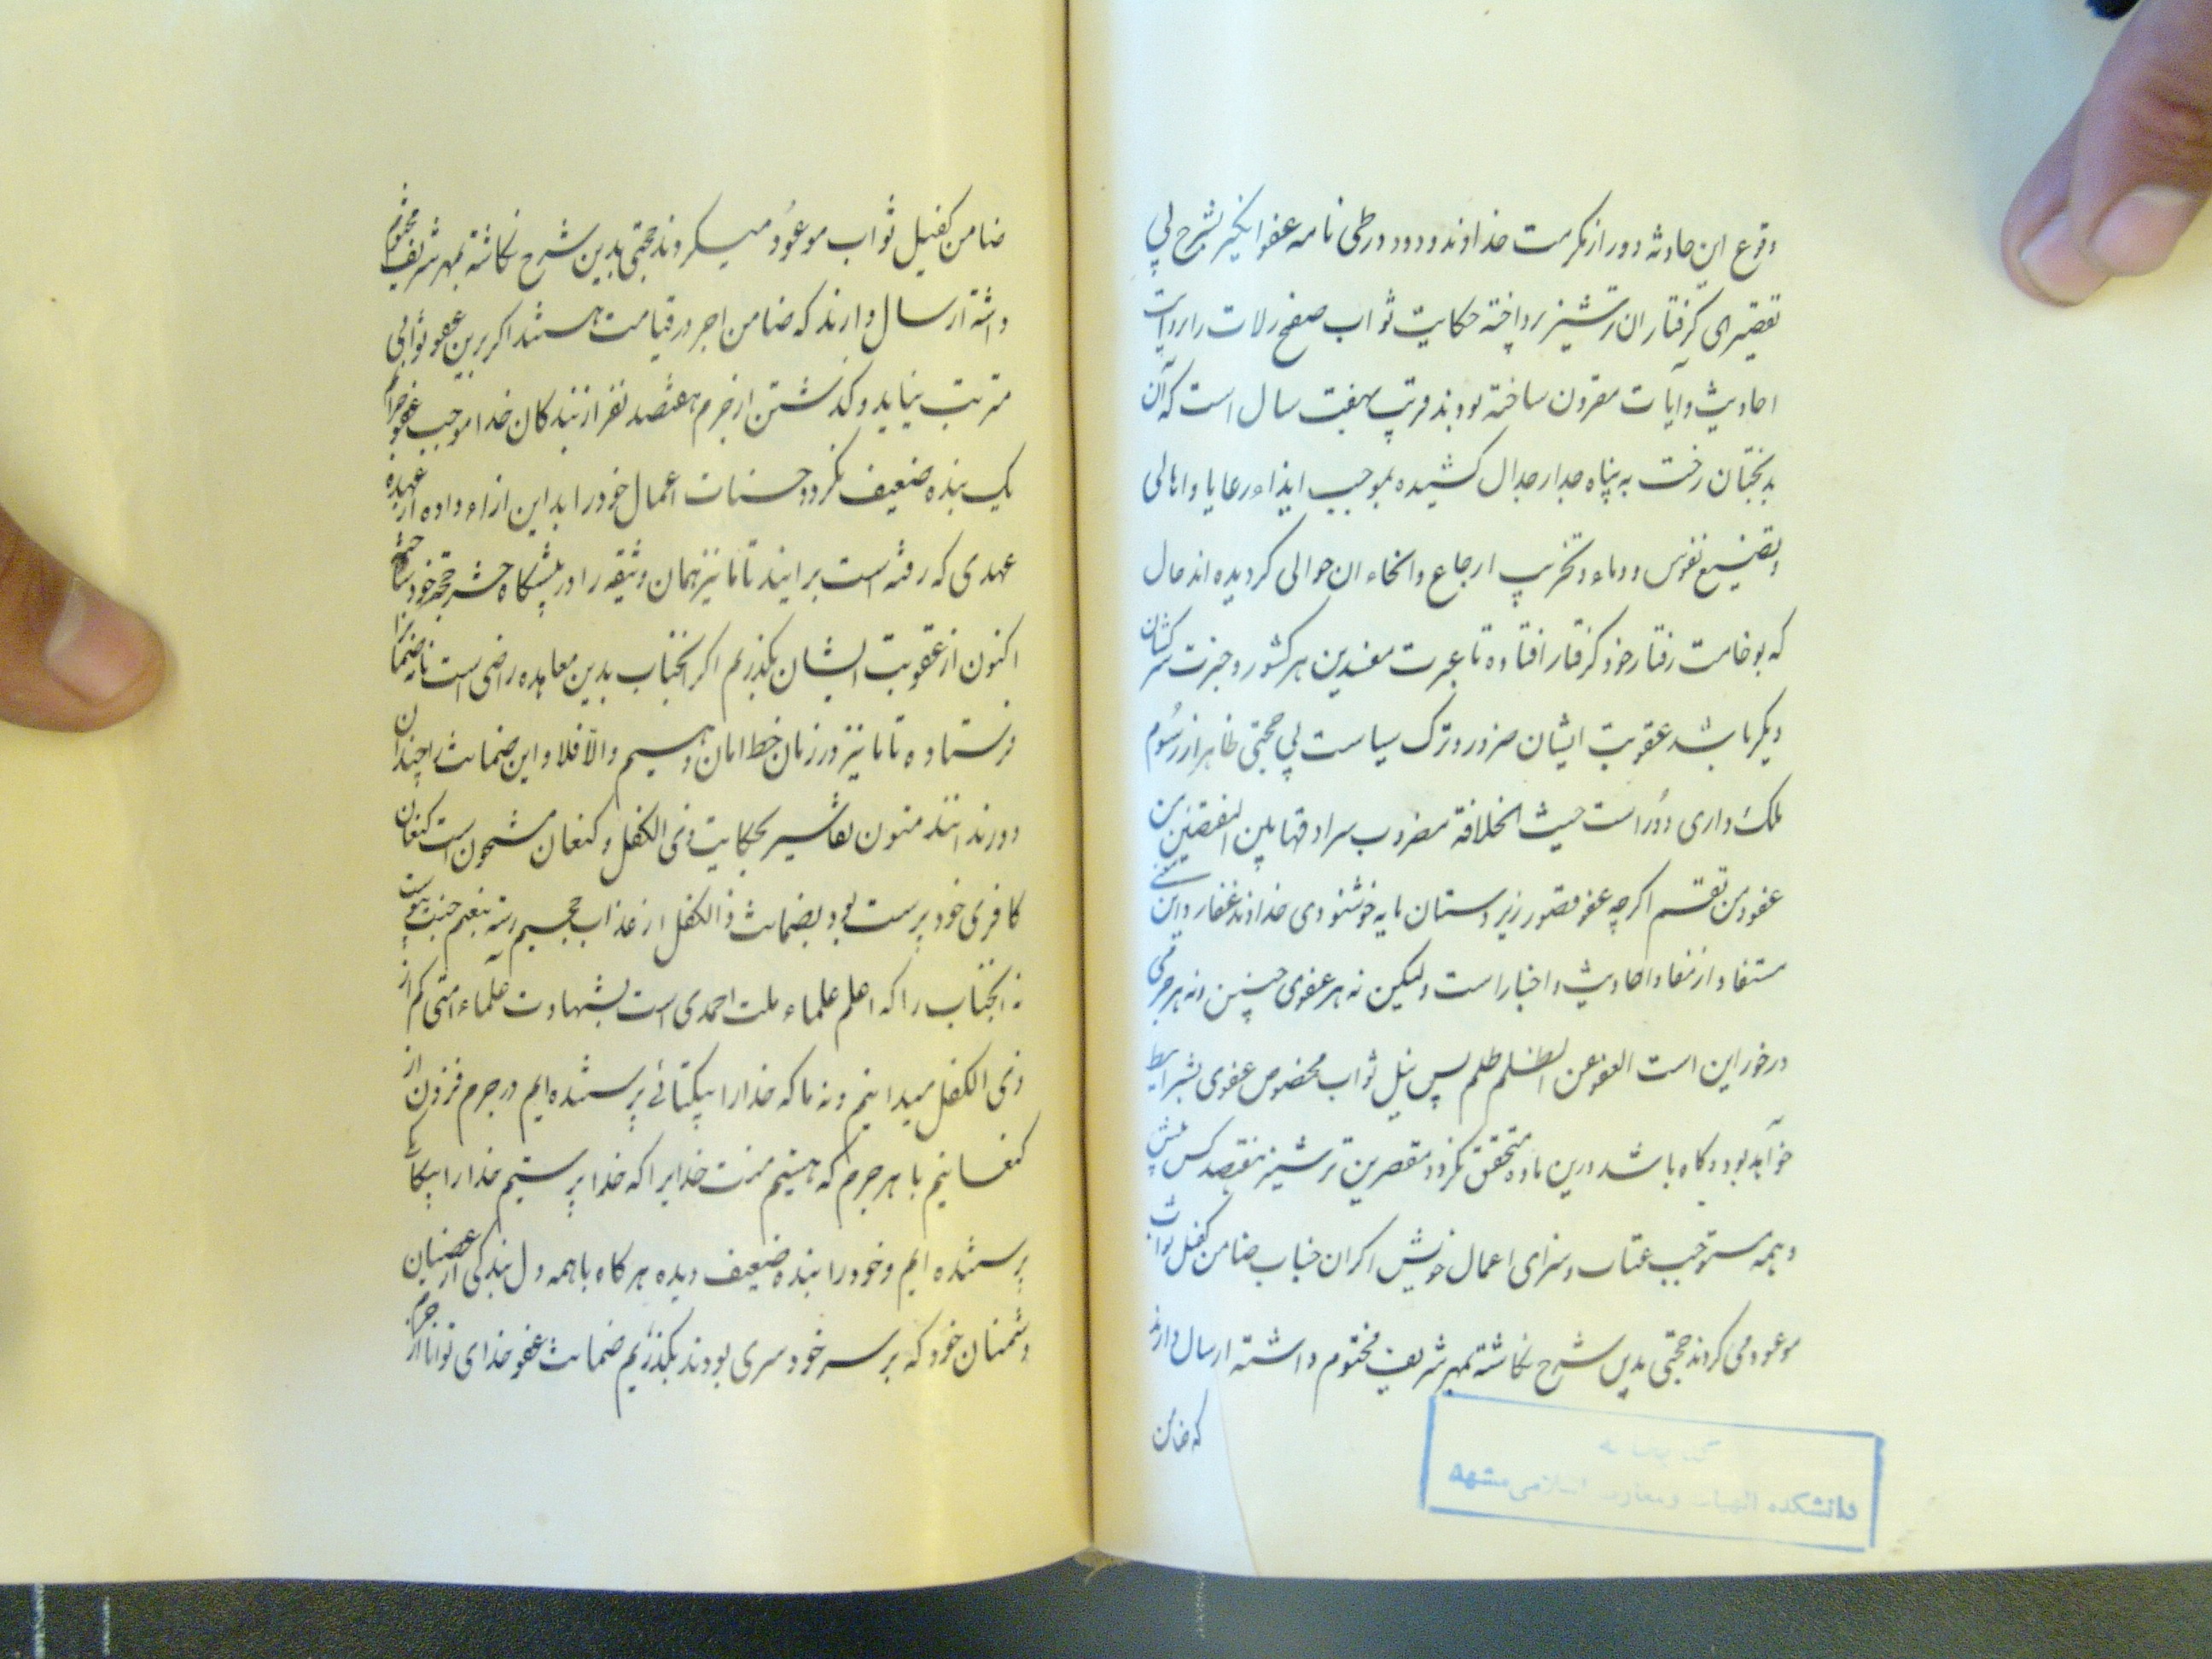 وقوع این حادثه دور از مکرمت خداوند ودود در طی نامه عفو انگیز بشرح بی
تقصیری گرفتاران ترشیز پرداخته حکایت ثواب صفح زلات را با روایات
احادیث و آیات مقرون ساخته بودند قریب هفت سال است که آن
بدبختان رخت به پناه جدار جدال کشیده بموجب ایذاء رعایا و اهالی
و تضییع نفوس و دماء و تخریب ارجاع و انحاء ان حوالی گردیده اند حال
که بوخامت رفتار خود گرفتار افتاده تا عبرت مفسدین هر کشور و حیرت سرکشان
دیگر باشد عقوبت ایشان ضرور و ترک سیاست بی حجتی ظاهر از رسوم
ملک داری دور است حیث الخلافة مضروب سرادقها بین النقیضین من
عفو و من نقم اگرچه عفو قصور زیردستان مایه خوشنودی خداوند غفار و این معنی
مستفاد از مفاد احادیث و اخبار است ولیکن نه هر عفوی چنین و نه هر جرمی
درخور این است العفو عن الظلم ظلم پس نیل ثواب مخصوص عفوی بشرایط
خواهد بود و گاه باشد درین ماده متحقق نگردد مقصرین ترشیز هفتصد کس بیش
و همه مستوجب عتاب و سزای اعمال خویش اگر ان جناب ضامن کفیل ثواب
موعود می گردند حجتی بدین شرح نگاشته بمهر شریف مختوم داشته ارسال دارند
که ضامن
دانشکده الهیات و معارف اسلامی مشهد
ضامن کفیل ثواب موعود میگردند حجتی بدین شرح نگاشته بمهر شریف مختوم
داشته ارسال دارند که ضامن اجر در قیامت هستند اگر برین عفو ثوابی
مترتب نیاید و گذشتن از جرم هفتصد نفر از بندگان خدا موجب عفو جرائم
یک بنده ضعیف نگردد حسنات اعمال خود را بد این ازاء داده از عهده
عهدی که رفته است برایند تا ما نیز همان وثیقه را در پیشگاه حشر حجة خود ساخته
اکنون از عقوبت ایشان بگذریم اگر انجناب بدین معاهده راضی است ضمانت نامه را
فرستاده تا ما نیز در زمان خط امان دهیم والا فلا و این ضمانت را چندان
دور ندانند متون تفاسیر بحکایت ذی الکفل و کنعان مشحون است کنعان
کافری خود پرست بود بضمانت ذالکفل از عذاب جحیم رسته بنعیم جنت پیوست
نه انجناب را که اعلم علماء ملت احمدی است بشهادت علماء امتی کم از
ذی الکفل میدانیم و نه ما که خدا را بیکتائی پرستنده ایم در جرم فزون از
کنعانیم با هر جرم که هستیم منت خدایرا که خدا پرستیم خدا را بیکتائی
پرستنده ایم و خود را بنده ضعیف دیده هر گاه با همه دل بندگی از عصیان
دشمنان خود که بر سر خود سری بودند بگذریم ضمانت عفو خدای توانا از جرم